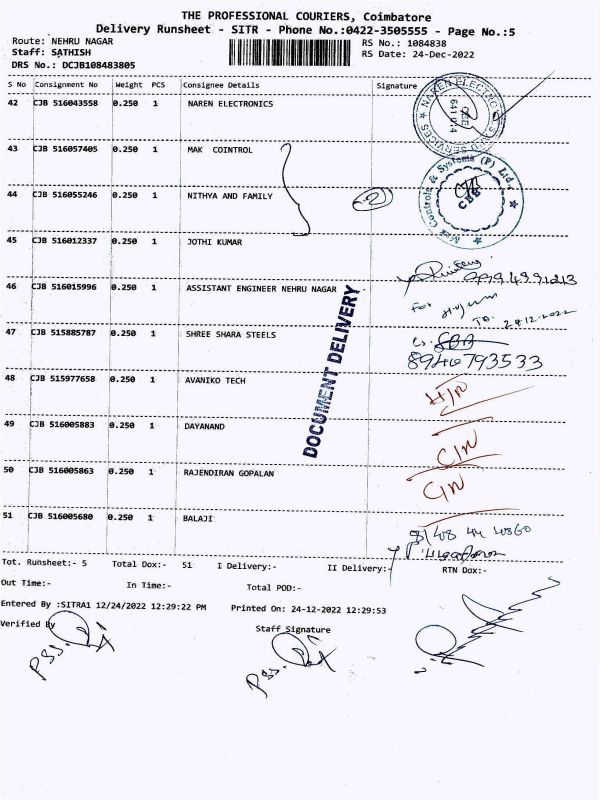 THE PROFESSIONAL COURIERS, Coimbatore
Delivery Runsheet - SITR - Phone No.:0422-3505555 - Page No.:5
Route: NEHRU NAGAR
RS No.: 1084838
Staff: SATHISH
RS Date: 24-Dec-2022
DRS No.: DCJB108483805
S No Consignment No Weight PCS Consignee Details Signature
42 CJB 516043558 0.250 1 NAREN ELECTRONICS
NAREN ELECTRONICS
CBE
641 014
SERVICES
43 CJB 516057405 0.250 1 MAK COINTROL
Mak Controls & Systems (P) Ltd.
CBE
44 CJB 516055246 0.250 1 NITHYA AND FAMILY
45 CJB 516012337 0.250 1 JOTHI KUMAR
9994991213
46 CJB 516015996 0.250 1 ASSISTANT ENGINEER NEHRU NAGAR
For
24-12-2022
47 CJB 515885787 0.250 1 SHREE SHARA STEELS
8946793533
48 CJB 515977658 0.250 1 AVANIKO TECH
DOCUMENT DELIVERY
49 CJB 516005883 0.250 1 DAYANAND
50 CJB 516005863 0.250 1 RAJENDIRAN GOPALAN
51 CJB 516005680 0.250 1 BALAJI
Tot. Runsheet:- 5 Total Dox:- 51 I Delivery:- II Delivery:- RTN Dox:-
Out Time:- In Time:- Total POD:-
Entered By :SITRA1 12/24/2022 12:29:22 PM Printed On: 24-12-2022 12:29:53
Verified By
Staff Signature